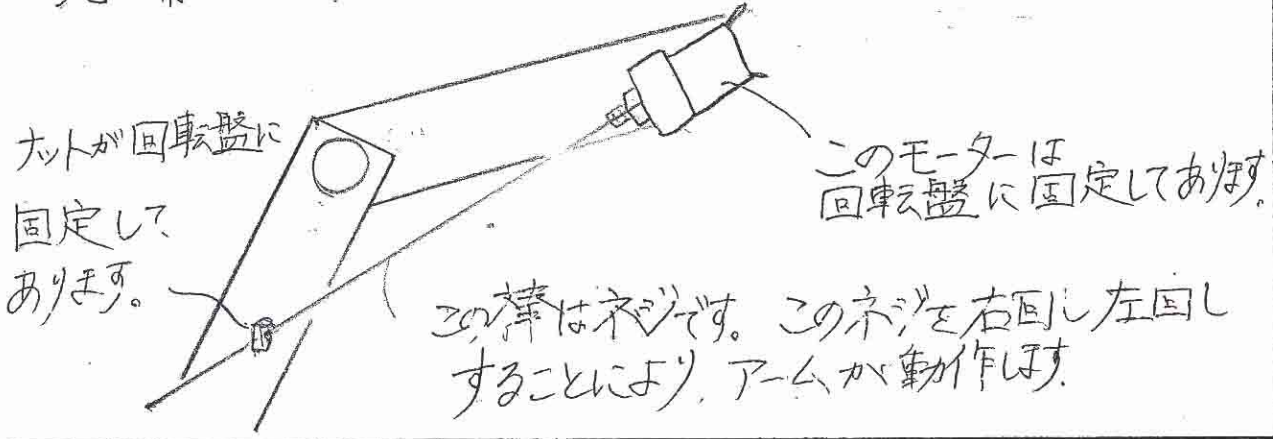 ナットが回転盤に
固定して
あります。
このモーターは
回転盤に固定してあります。
この棒はネジです。このネジを右回し左回し
することにより、アームが動作します。